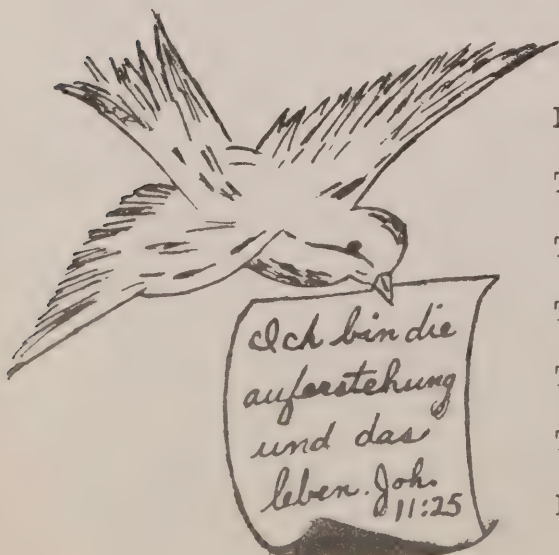 Ich bin die
auferstehung
und das
leben. Joh.
11:25